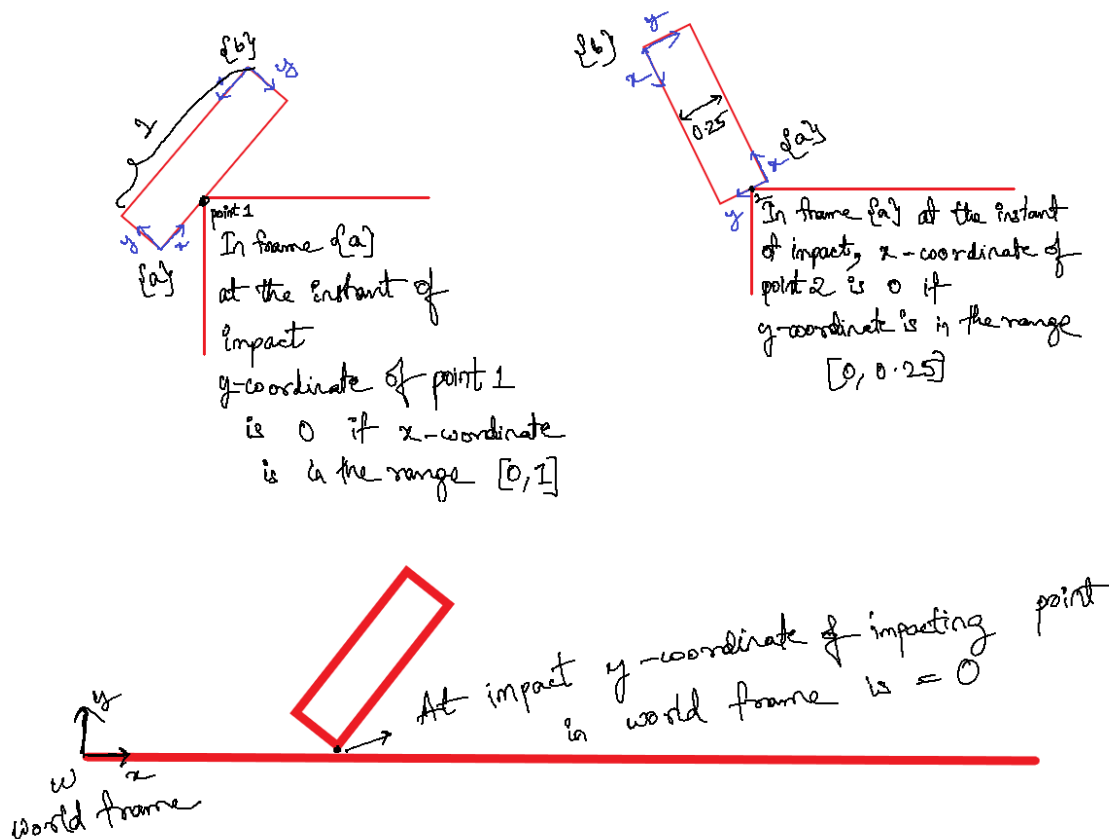 {b}
y
1
point 1
y
x
{a}
In frame {a}
at the instant of
impact
y-coordinate of point 1
is 0 if x-coordinate
is in the range [0,1]
{b}
y
x
0.25
{a}
x
y
2
In frame {a} at the instant
of impact, x-coordinate of
point 2 is 0 if
y-coordinate is in the range
[0, 0.25]
At impact y-coordinate of impacting point
in world frame is = 0
y
x
W
world frame